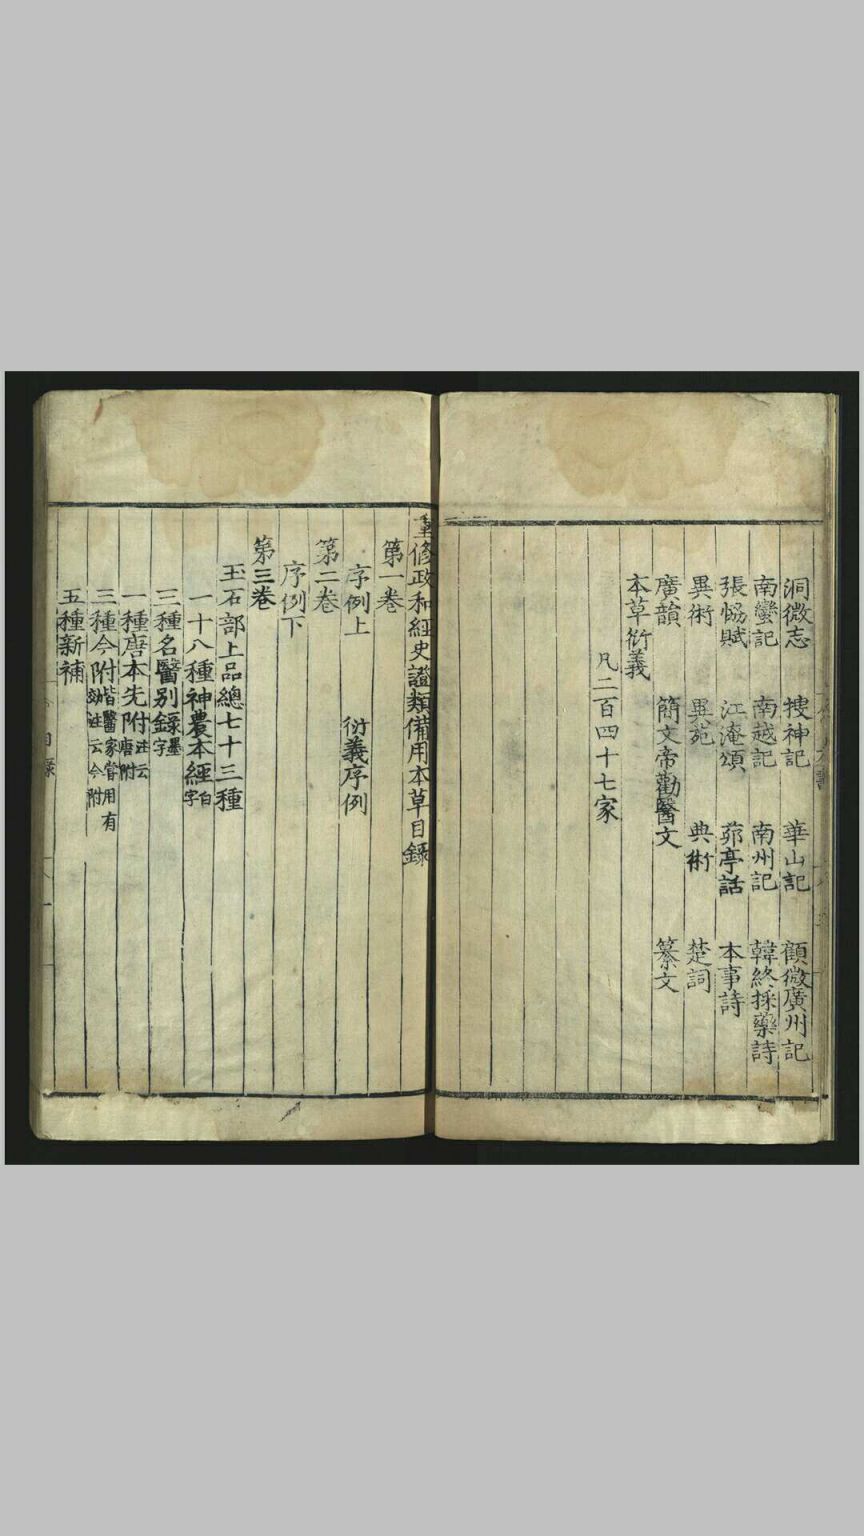 洞微志 搜神記 華山記 顧微廣州記
南蠻記 南越記 南州記 韓終採藥詩
張恊賦 江淹頌 茆亭話 本事詩
異術 異苑 典術 楚詞
廣韻 簡文帝勸醫文 纂文
本草衍義
凡二百四十七家
重修政和經史證類備用本草目錄
第一卷
序例上 衍義序例
第二卷
序例下
第三卷
玉石部上品總七十三種
一十八種神農本經白字
三種名醫別錄墨字
一種唐本先附注云唐附
三種今附皆醫家嘗用有効注云今附
五種新補